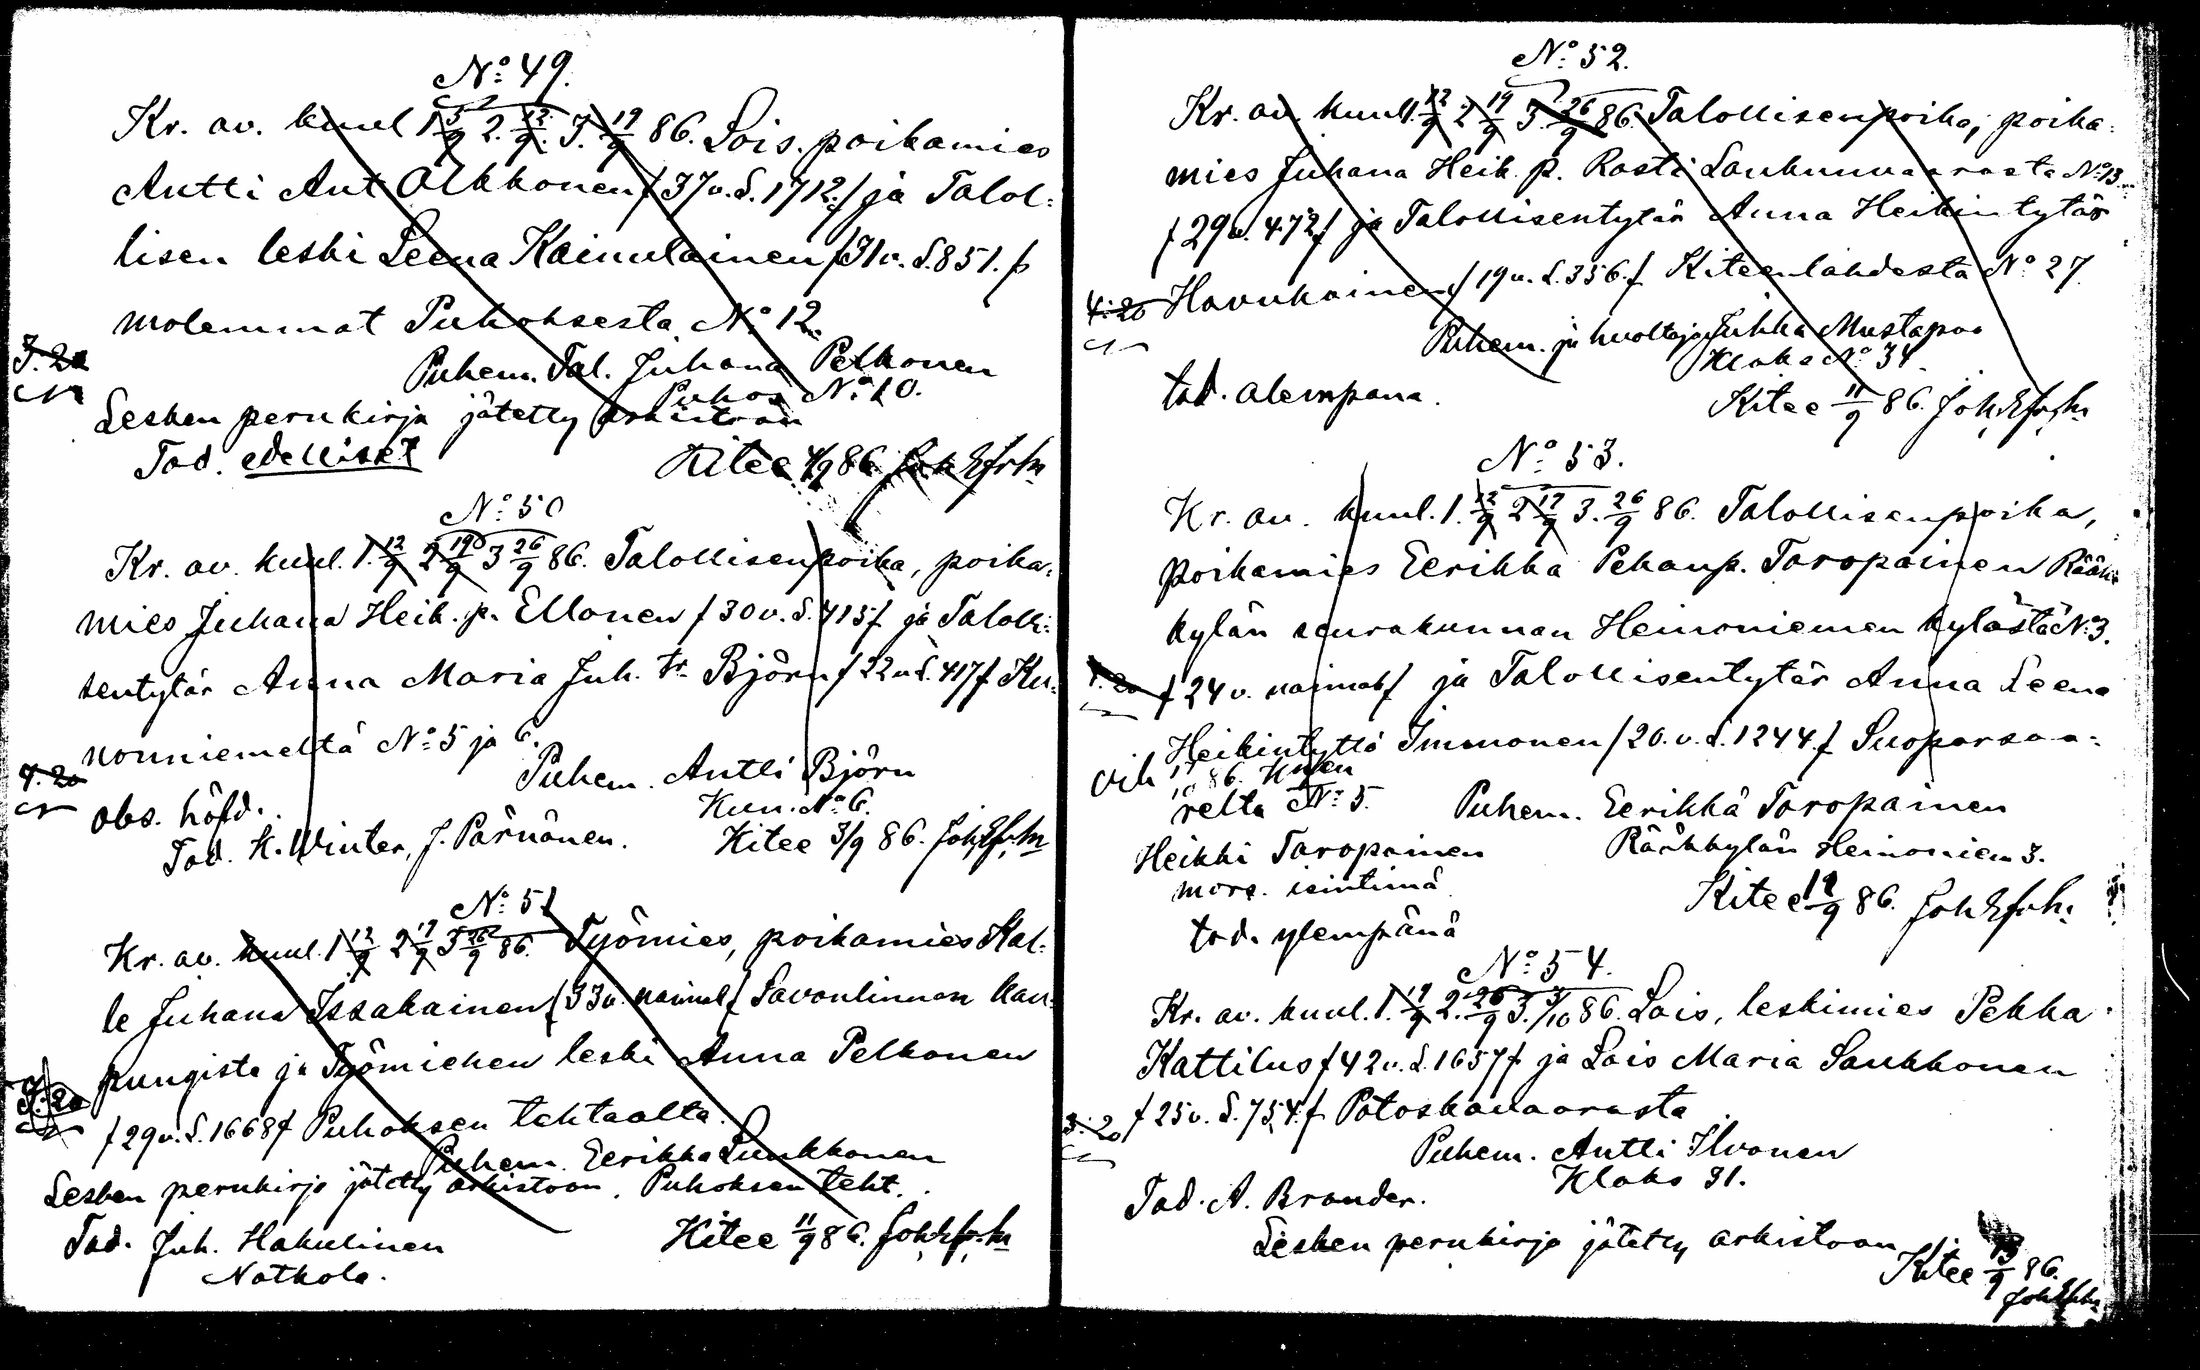 No: 49.
Kr. av. kuul 1 5/9 2. 12/9. 3. 19/9 86. Lois. poikamies
Antti Ant Olkkonen /37 v. S. 1712./ ja Talol-
lisen leski Leena Kainulainen /31 v. S. 851./
molemmat Puhoksesta No: 12.
Puhem. Tal. Juhana Pelkonen
Puhos No: 10.
3: 20
Lesken perukirja jätetty arkistoon
Tod. edelliset
Kitee 4/9 86.
No: 50
Kr. av. kuul. 1. 12/9 2 19/9 3 26/9 86. Talollisenpoika, poika-
mies Juhana Heik. p. Ellonen /30 v. S. 415/ ja Talolli-
sentytär Anna Maria Juh. tr Björn /22 v. S. 417/ Ku-
nonniemeltä No: 5 ja 6.
Puhem. Antti Björn
Kun. No: 6.
4: 20
obs. höfd.
Tod. K. Winter, J. Pärnänen.
Kitee 3/9 86.
No: 51
Kr. av. kuul. 1 12/9 2 19/9 3 26/9 86. Työmies, poikamies Kal-
le Juhana Issakainen /33 v. / Savonlinnan kau-
pungista ja Työmiehen leski Anna Pelkonen
/29 v. S. 1668/ Puhoksen tehtaalta.
3: 20
Puhem. Eerikka Sunkkonen
Lesken perukirja jätetty arkistoon. Puhoksen teht.
Tod. Juh. Hakulinen
Natkola.
Kitee 11/9 86.
No: 52.
Kr. av. kuul. 1 12/9 2 19/9 3 26/9 86. Talollisenpoika, poika-
mies Juhana Heik. p. Rasti Loukunvaarasta No: 13
/29 v. 472/ ja Talollisentytär Anna Heikintytär
Havukainen /19 v. S. 356./ Kiteenlahdesta No: 27
4: 20
Puhem. ja huoltaja Juhka Mustapää
Kloks No: 34
tod. alempana.
Kitee 11/9 86.
No: 53.
Kr. av. kuul. 1. 12/9 2 19/9 3. 26/9 86. Talollisenpoika,
poikamies Eerikka Pekanp. Toropainen Rääk-
kylän seurakunnan Heinoniemen kylästä No: 3.
/24 v. / ja Talollisentytär Anna Leena
Heikintyttö Immonen /20. v. S. 1244./ Suoparsaa-
relta No: 5.
Puhem. Eerikkä Toropainen
Rääkkylän Heinoniem 3.
Heikki Taropainen
mors. isintimä
tod. ylempänä
Kitee 12/9 86.
No: 54.
Kr. av. kuul. 1. 19/9 2. 26/9 3. 3/10 86. Lois, leskimies Pekka
Kattilus /42 v. S. 1657/ ja Lois Maria Saukkonen
/25 v. S. 754./ Potoskavaarasta
3: 20
Puhem. Antti Ilvonen
Kloks 31.
Tod. A. Brander.
Lesken perukirja jätetty arkistoon
Kitee 13/9 86.